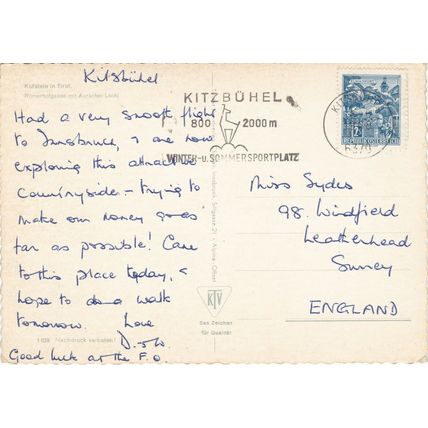 Kitzbühel
Kufstein in Tirol,
Römerhofgasse mit Auracher Löchl
Had a very smooth flight
to Innsbruck, & are now
exploring this attractive
countryside - trying to
make our money goes
far as possible! Came
to this place today, &
hope to do a walk
tomorrow. Love
D. &
Good luck at the F.O.
1 028 Nachdruck verboten!
KITZBÜHEL
800 2000 m
WINTER-u. SOMMERSPORTPLATZ
6370
REPUBLIK ÖSTERREICH
KTV
Das Zeichen
für Qualität
Miss Sydes
98. Windfield
Leatherhead
Surrey
ENGLAND